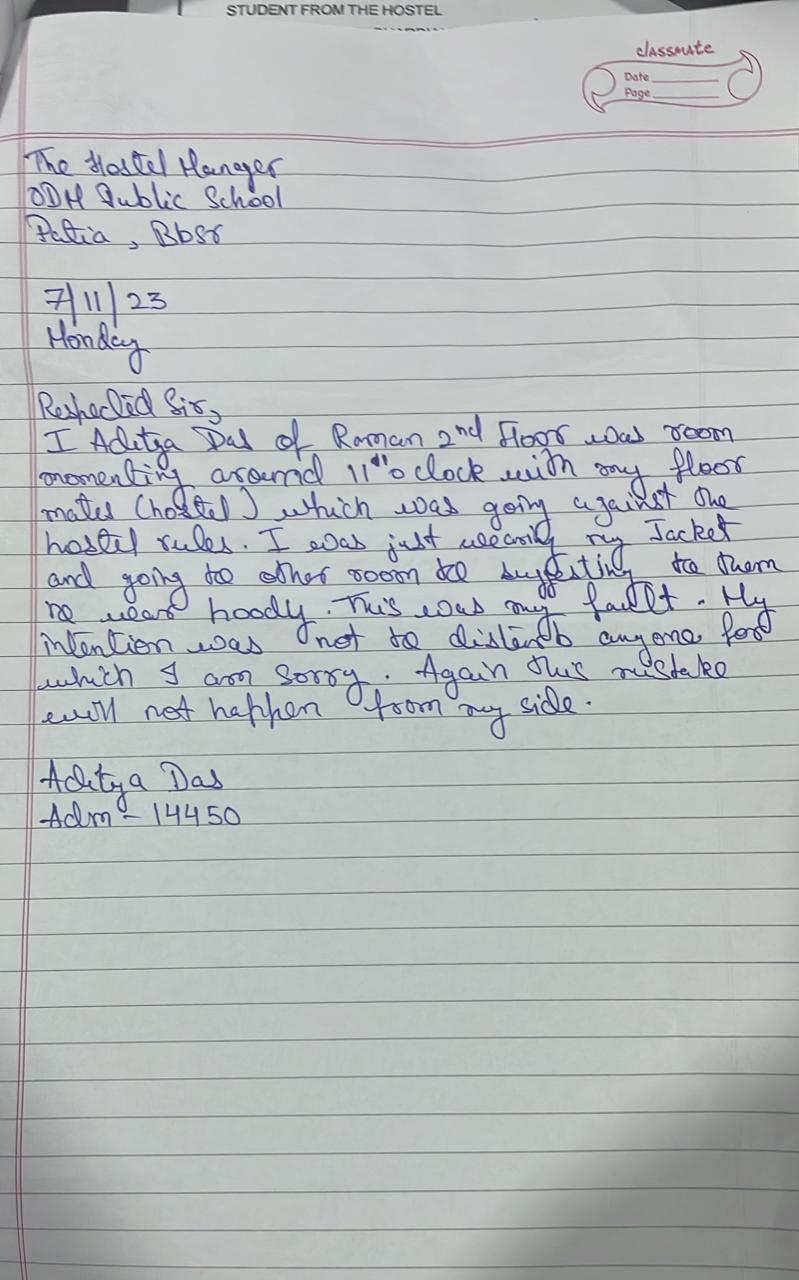 STUDENT FROM THE HOSTEL
classmate
Date
Page
The Hostel Manager
ODM Public School
Patia, Bbsr
7/11/23
Monday
Respected Sir,
I Aditya Das of Raman 2nd Floor was room
momenting around 11th o clock with my floor
mates (hostel) which was going against the
hostel rules. I was just wearing my Jacket
and going to other room to suggesting to them
to wear hoody. This was my fault. My
intention was not to disteub anyone for
which I am sorry. Again this mistake
will not happen from my side.
Aditya Das
Adm - 14450